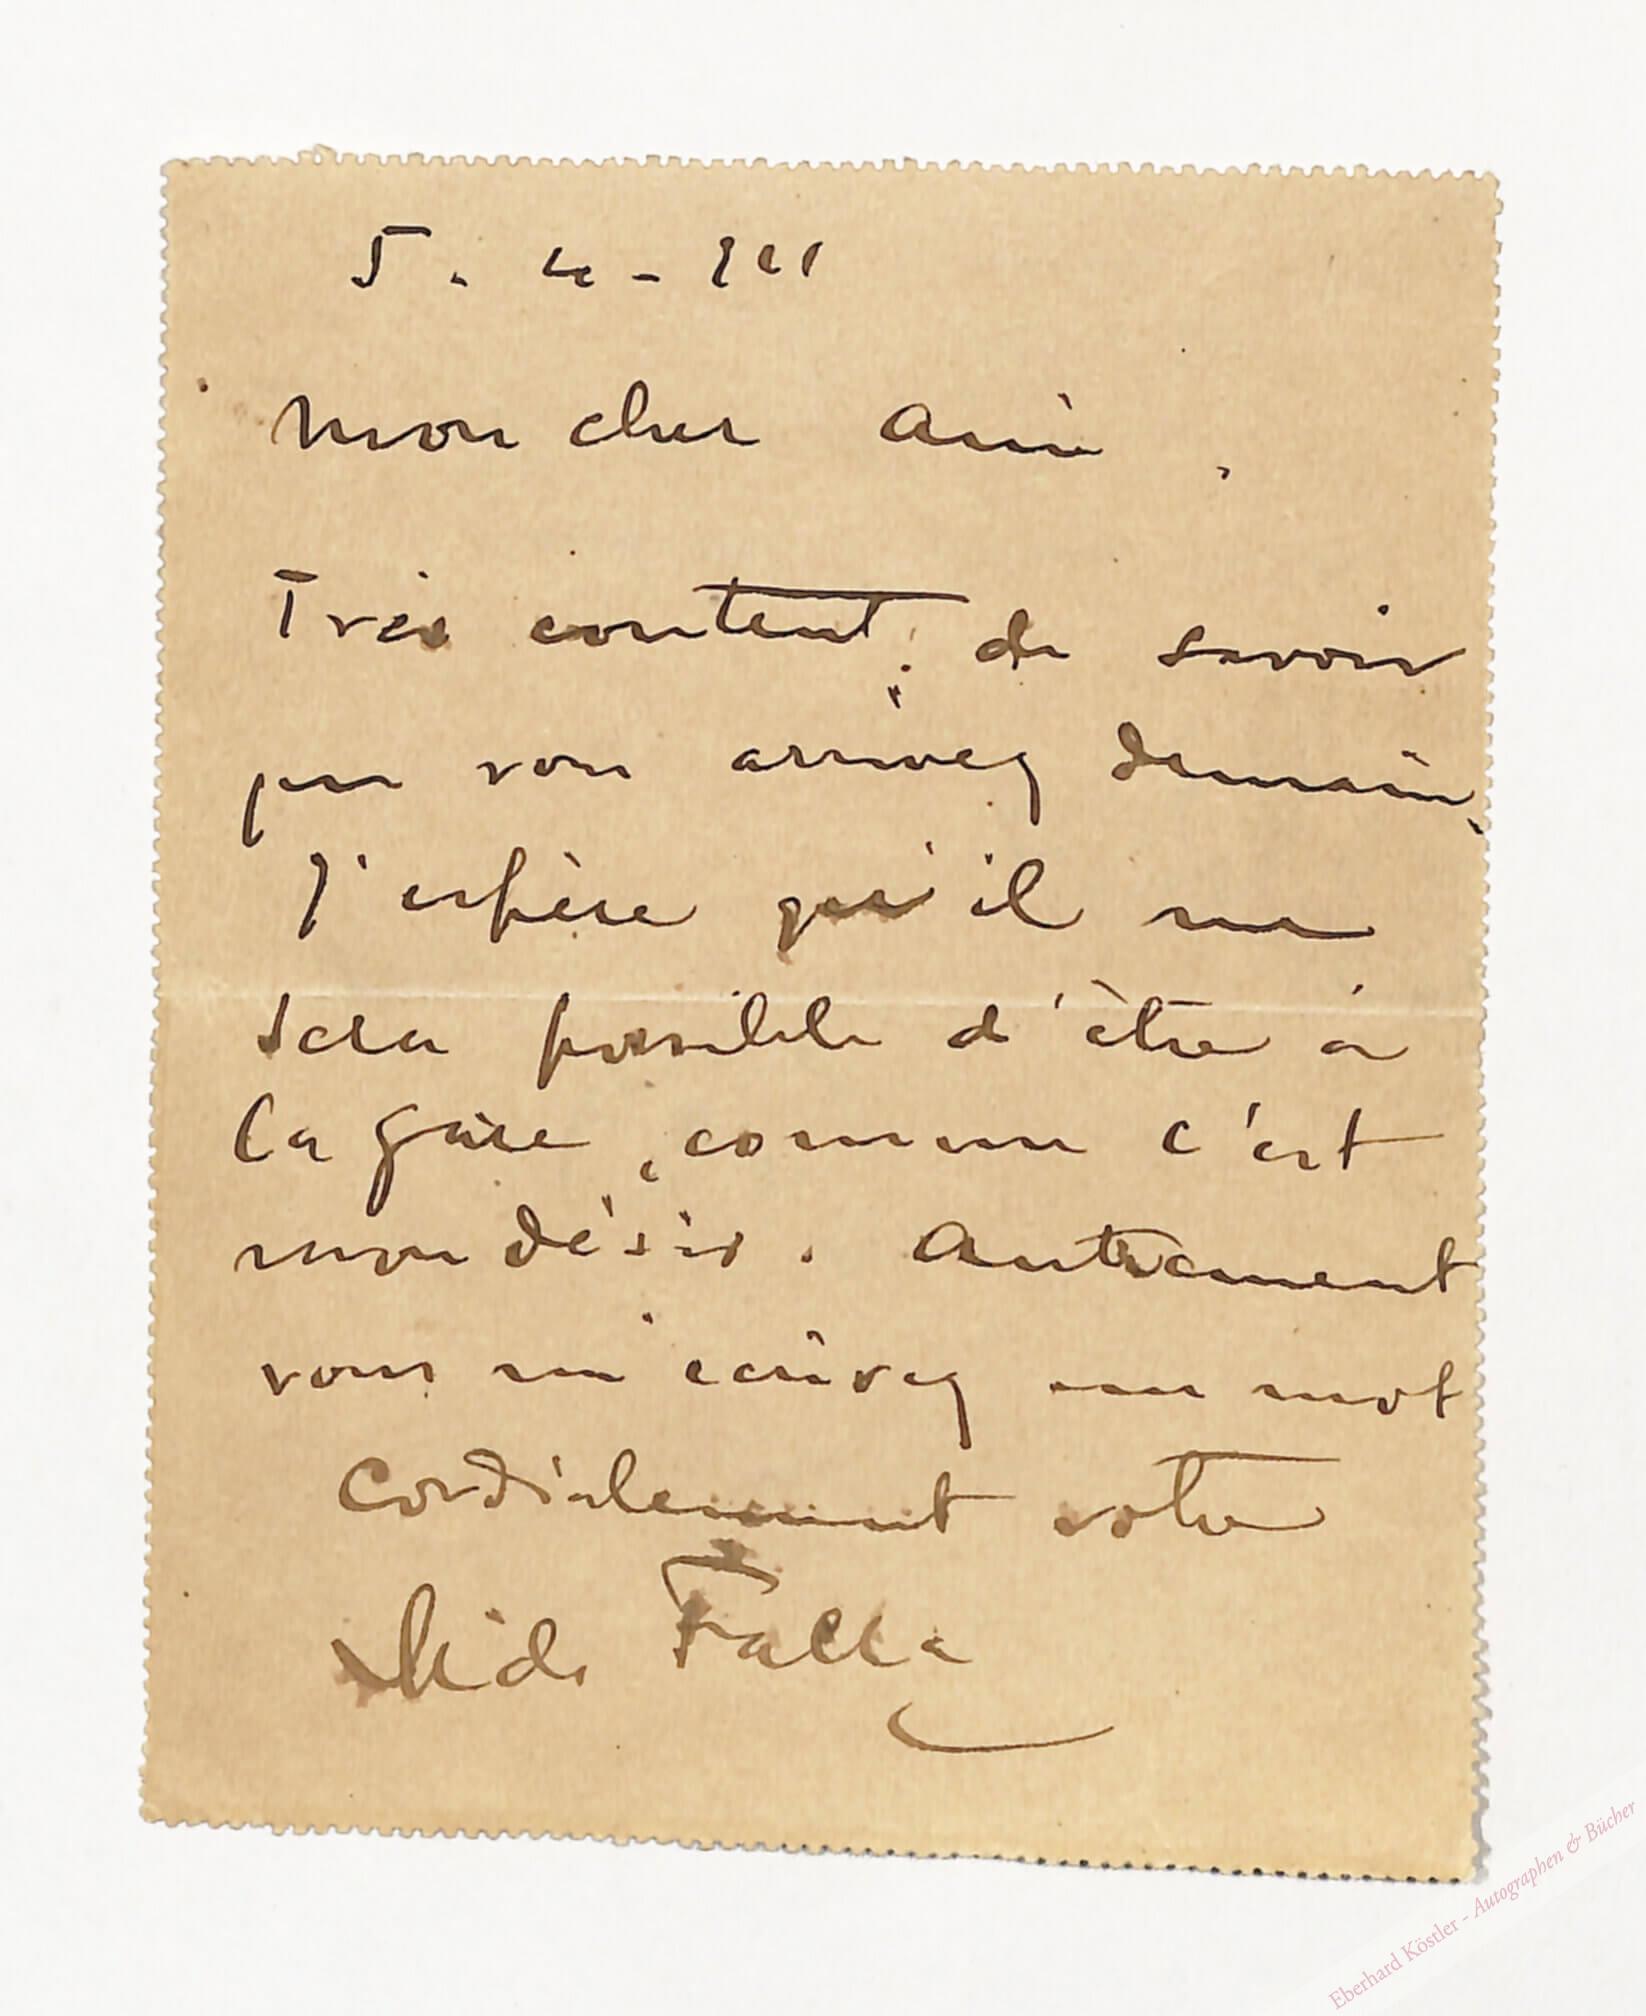 5. 4 - 911
Mon cher Ami,
Très content de savoir
que vous arrivez demain.
J'espère qu'il me
sera possible d'être à
la gare, comme c'est
mon désir. Autrement
vous m'écrivez un mot
Cordialement votre
M. de Falla
Eberhard Köstler - Autographen & Bücher